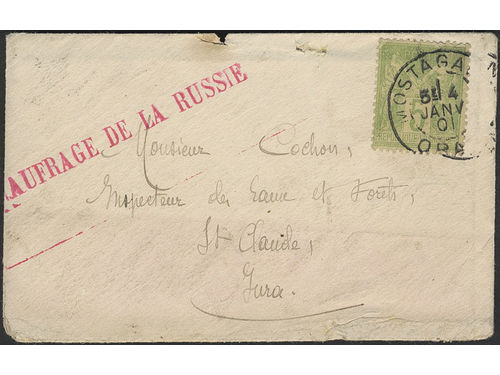 AUFRAGE DE LA RUSSIE
MOSTAGA
5E 4
JANV
01
ORA
Monsieur Cochon,
Inspecteur des Eaux et Forêts,
St Claude,
Jura.